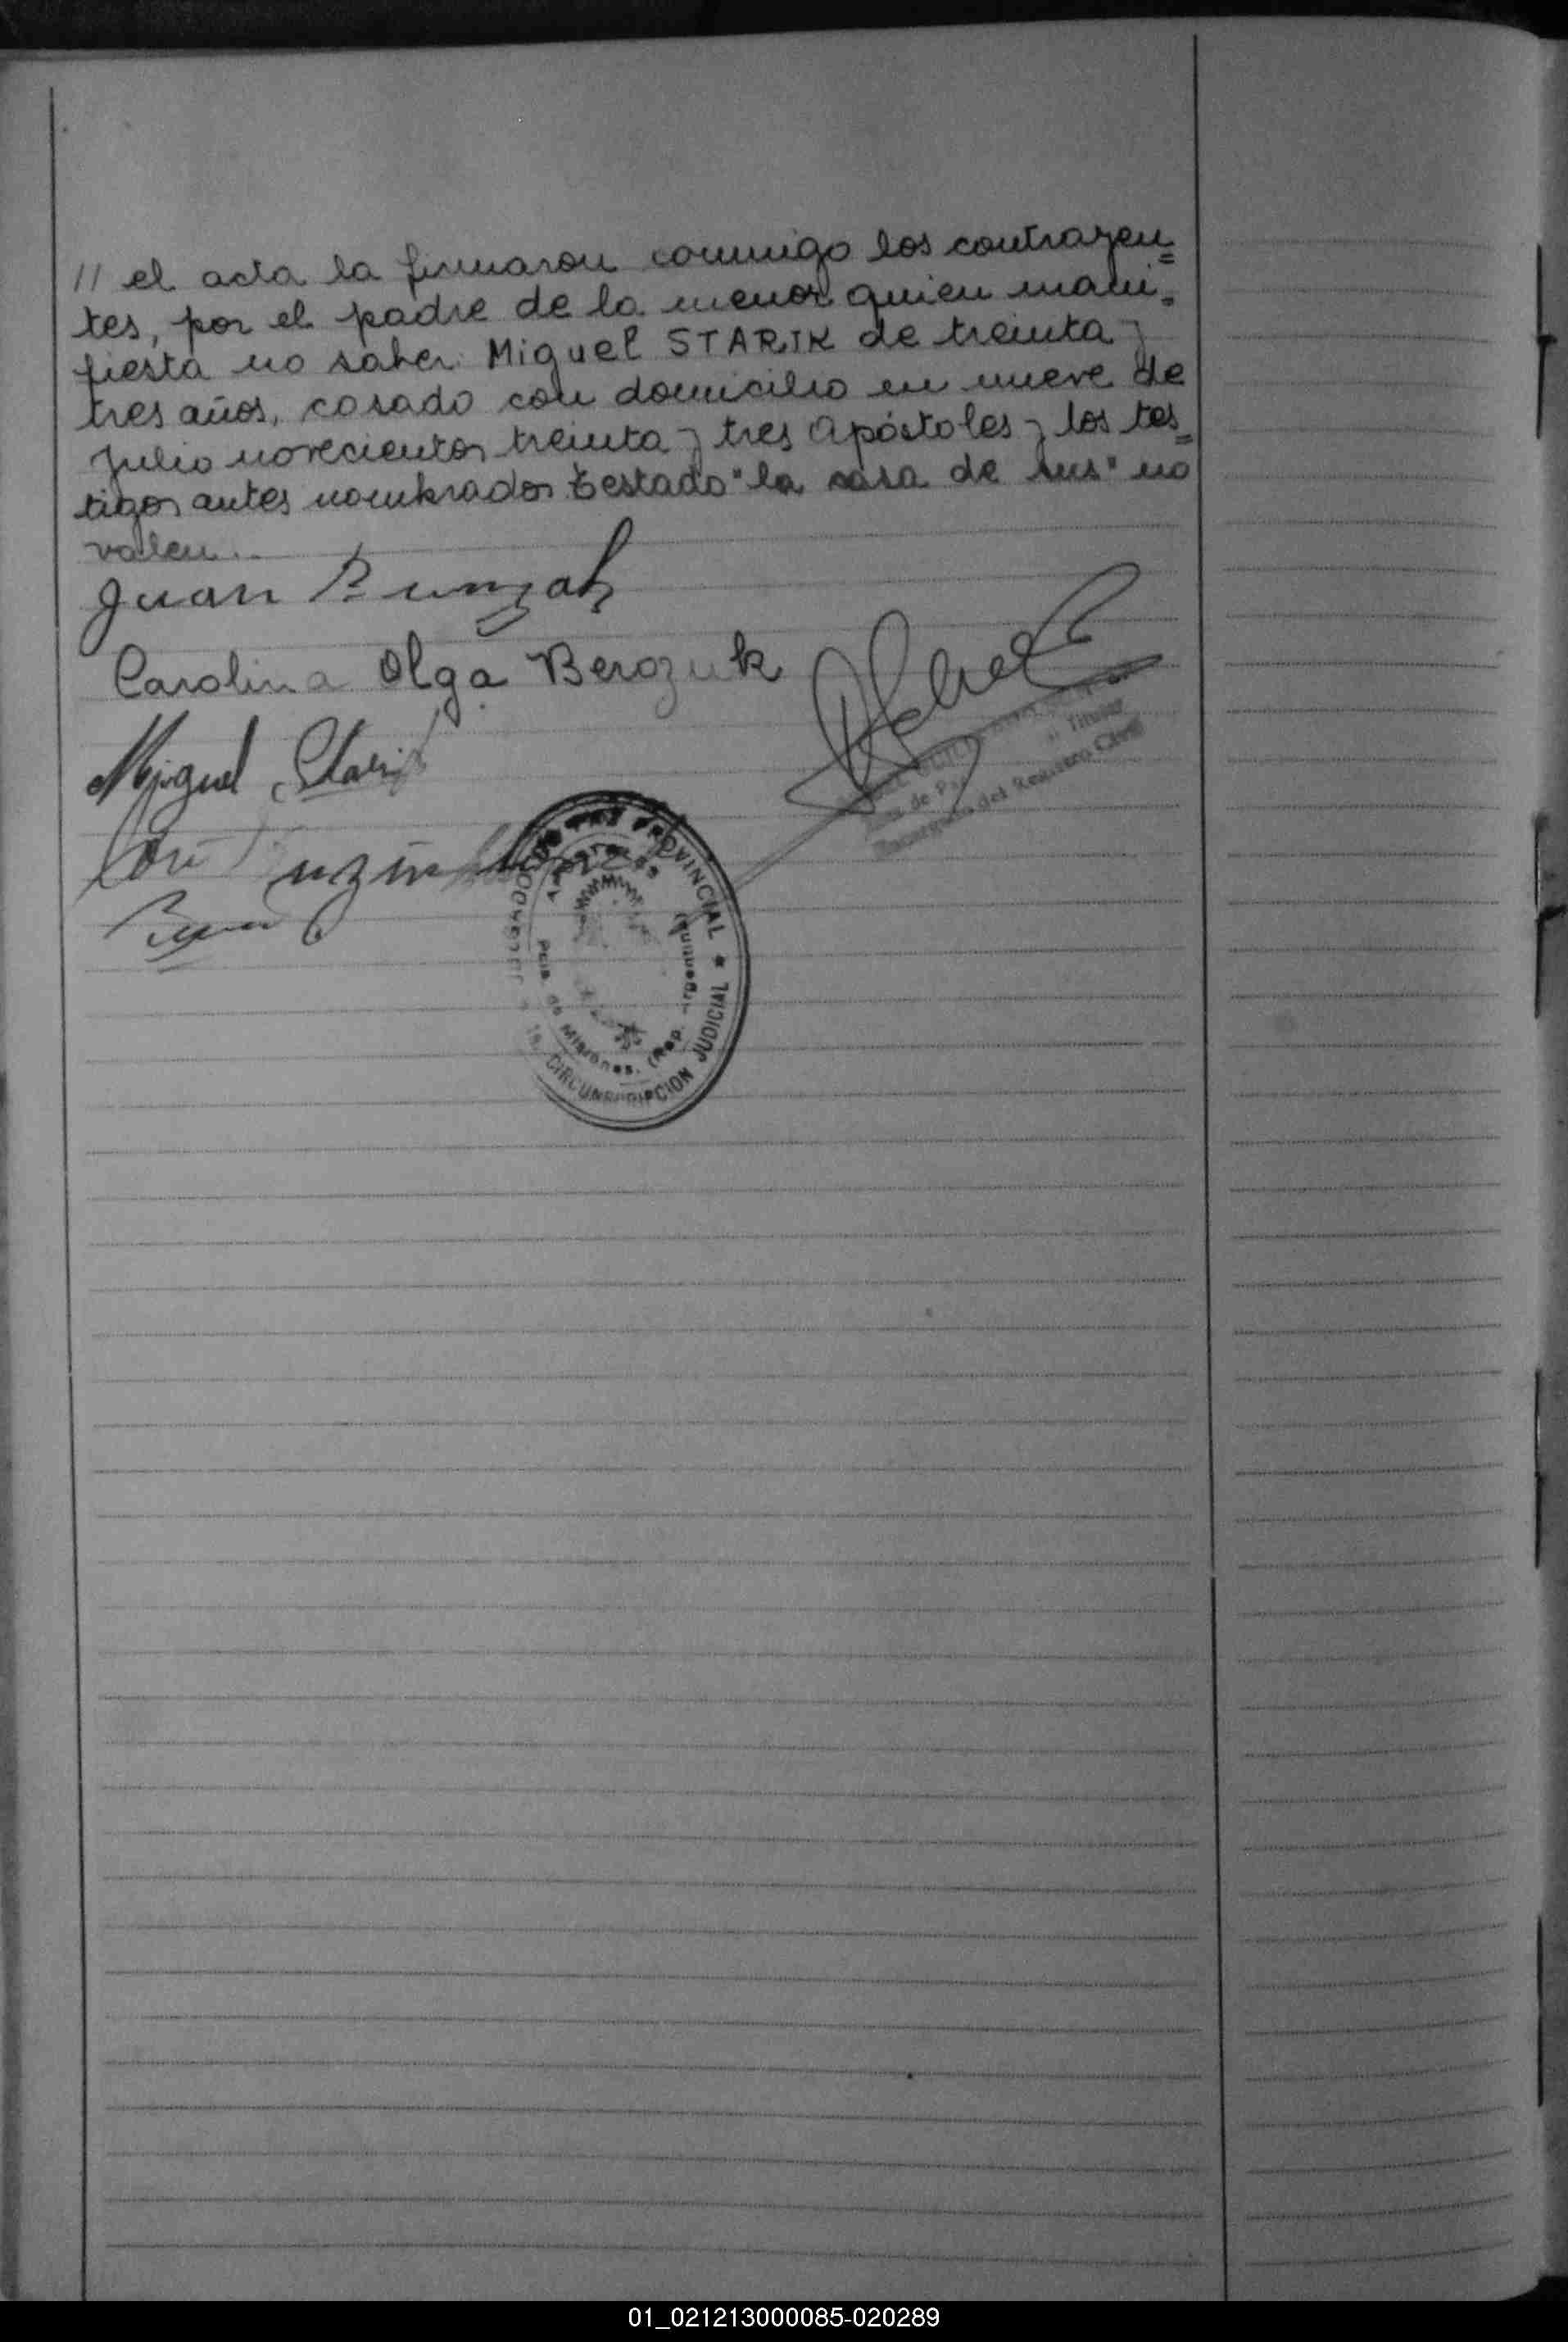 // el acta la firmaron conmigo los contrayen=
tes, por el padre de la menor quien mani-
fiesta no saber Miguel STARIK de treinta y
tres años, casado con domicilio en nueve de
Julio novecientos treinta y tres Apóstoles y los tes=
tigos antes nombrados testado "la casa de sus" no
valen..
Juan
Carolina Olga Berozuk
Miguel Starik
José
de Paz Titular
Encargado del Registro Civil
JUZGADO DE PAZ PROVINCIAL ★ 1a. CIRCUNSCRIPCION JUDICIAL
APOSTOLES
Pcia. de Misiones. (Rep. Argentina)
01_021213000085-020289